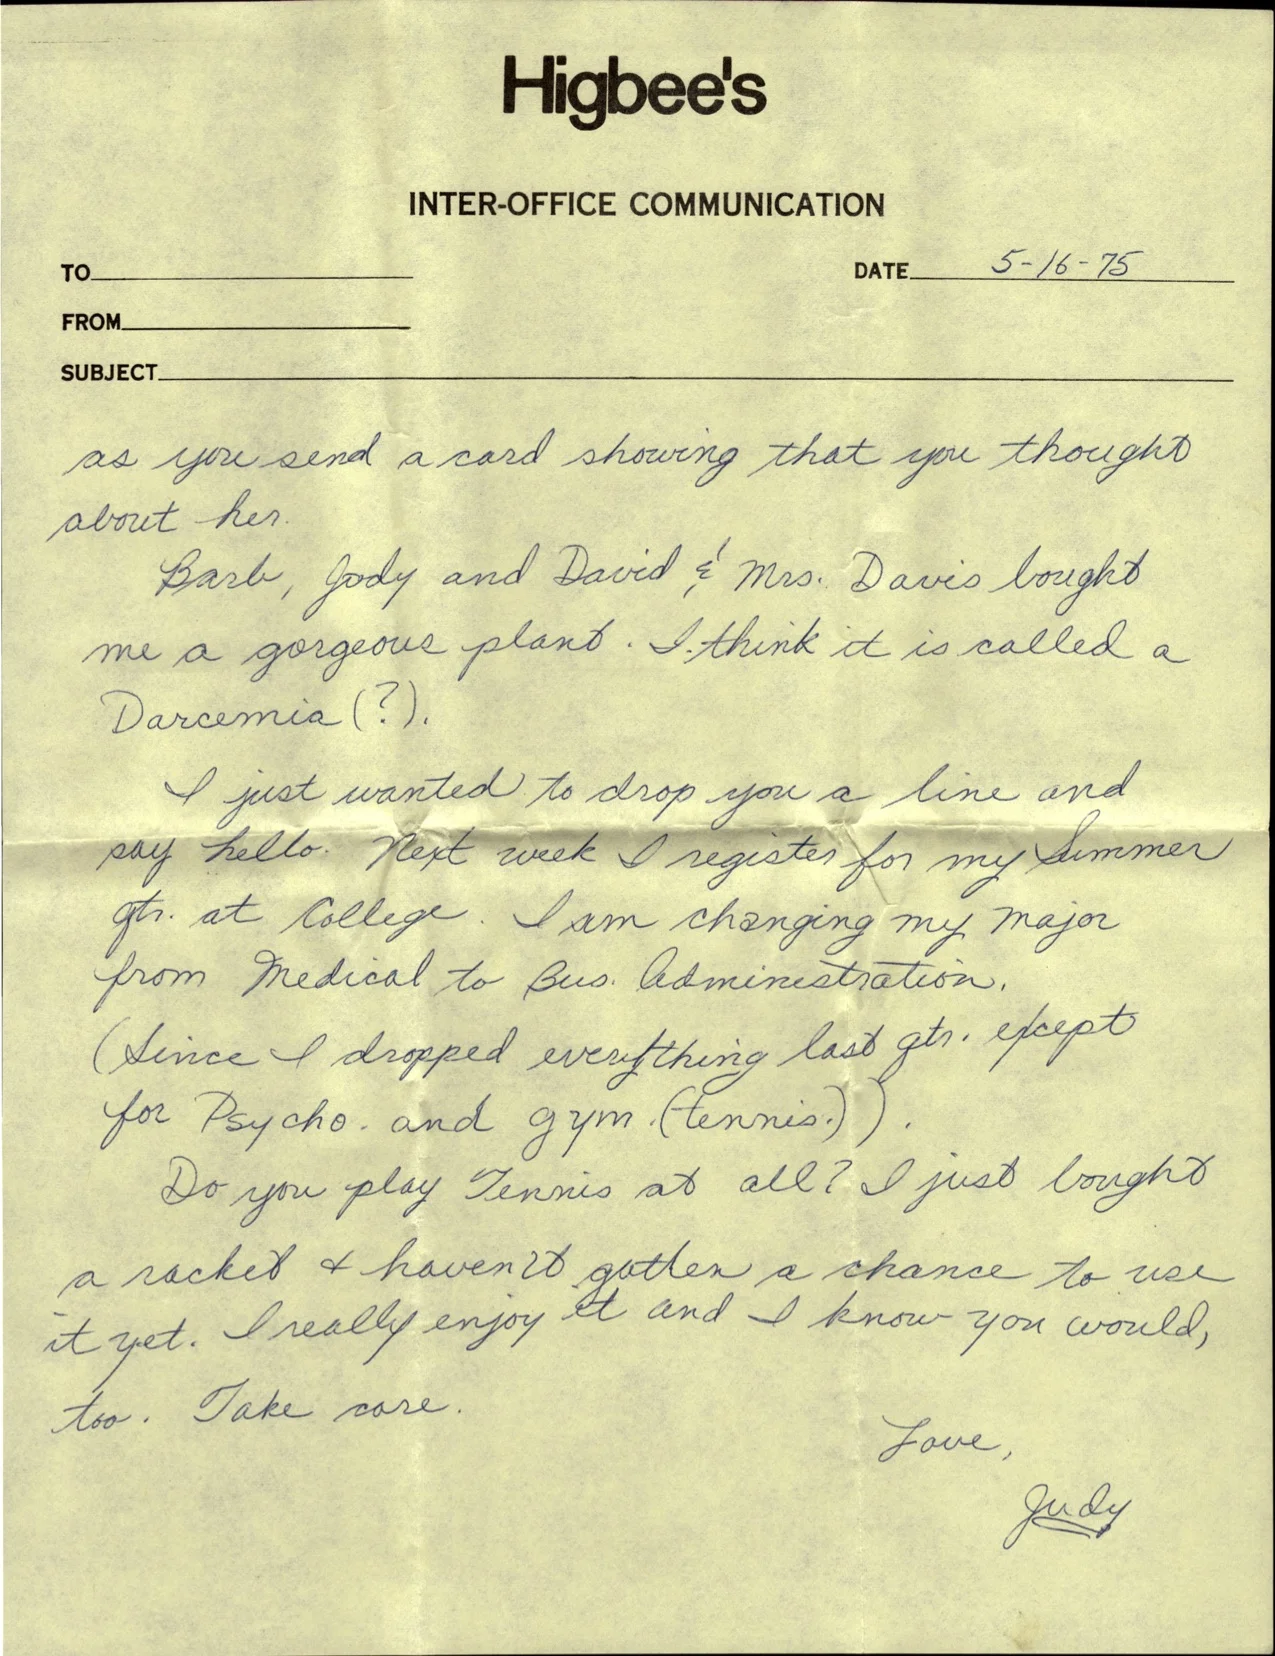 Higbee's
INTER-OFFICE COMMUNICATION
TO
DATE 5-16-75
FROM
SUBJECT
as you send a card showing that you thought
about her.
Barb, Jody and David & Mrs. Davis bought
me a gorgeous plant. I think it is called a
Darcemia (?).
I just wanted to drop you a line and
say hello. Next week I register for my Summer
qtr. at College. I am changing my major
from Medical to Bus. Administration.
(Since I dropped everything last qtr. except
for Psycho. and gym (tennis.)).
Do you play Tennis at all? I just bought
a racket & haven't gotten a chance to use
it yet. I really enjoy it and I know you would,
too. Take care.
Love,
Judy